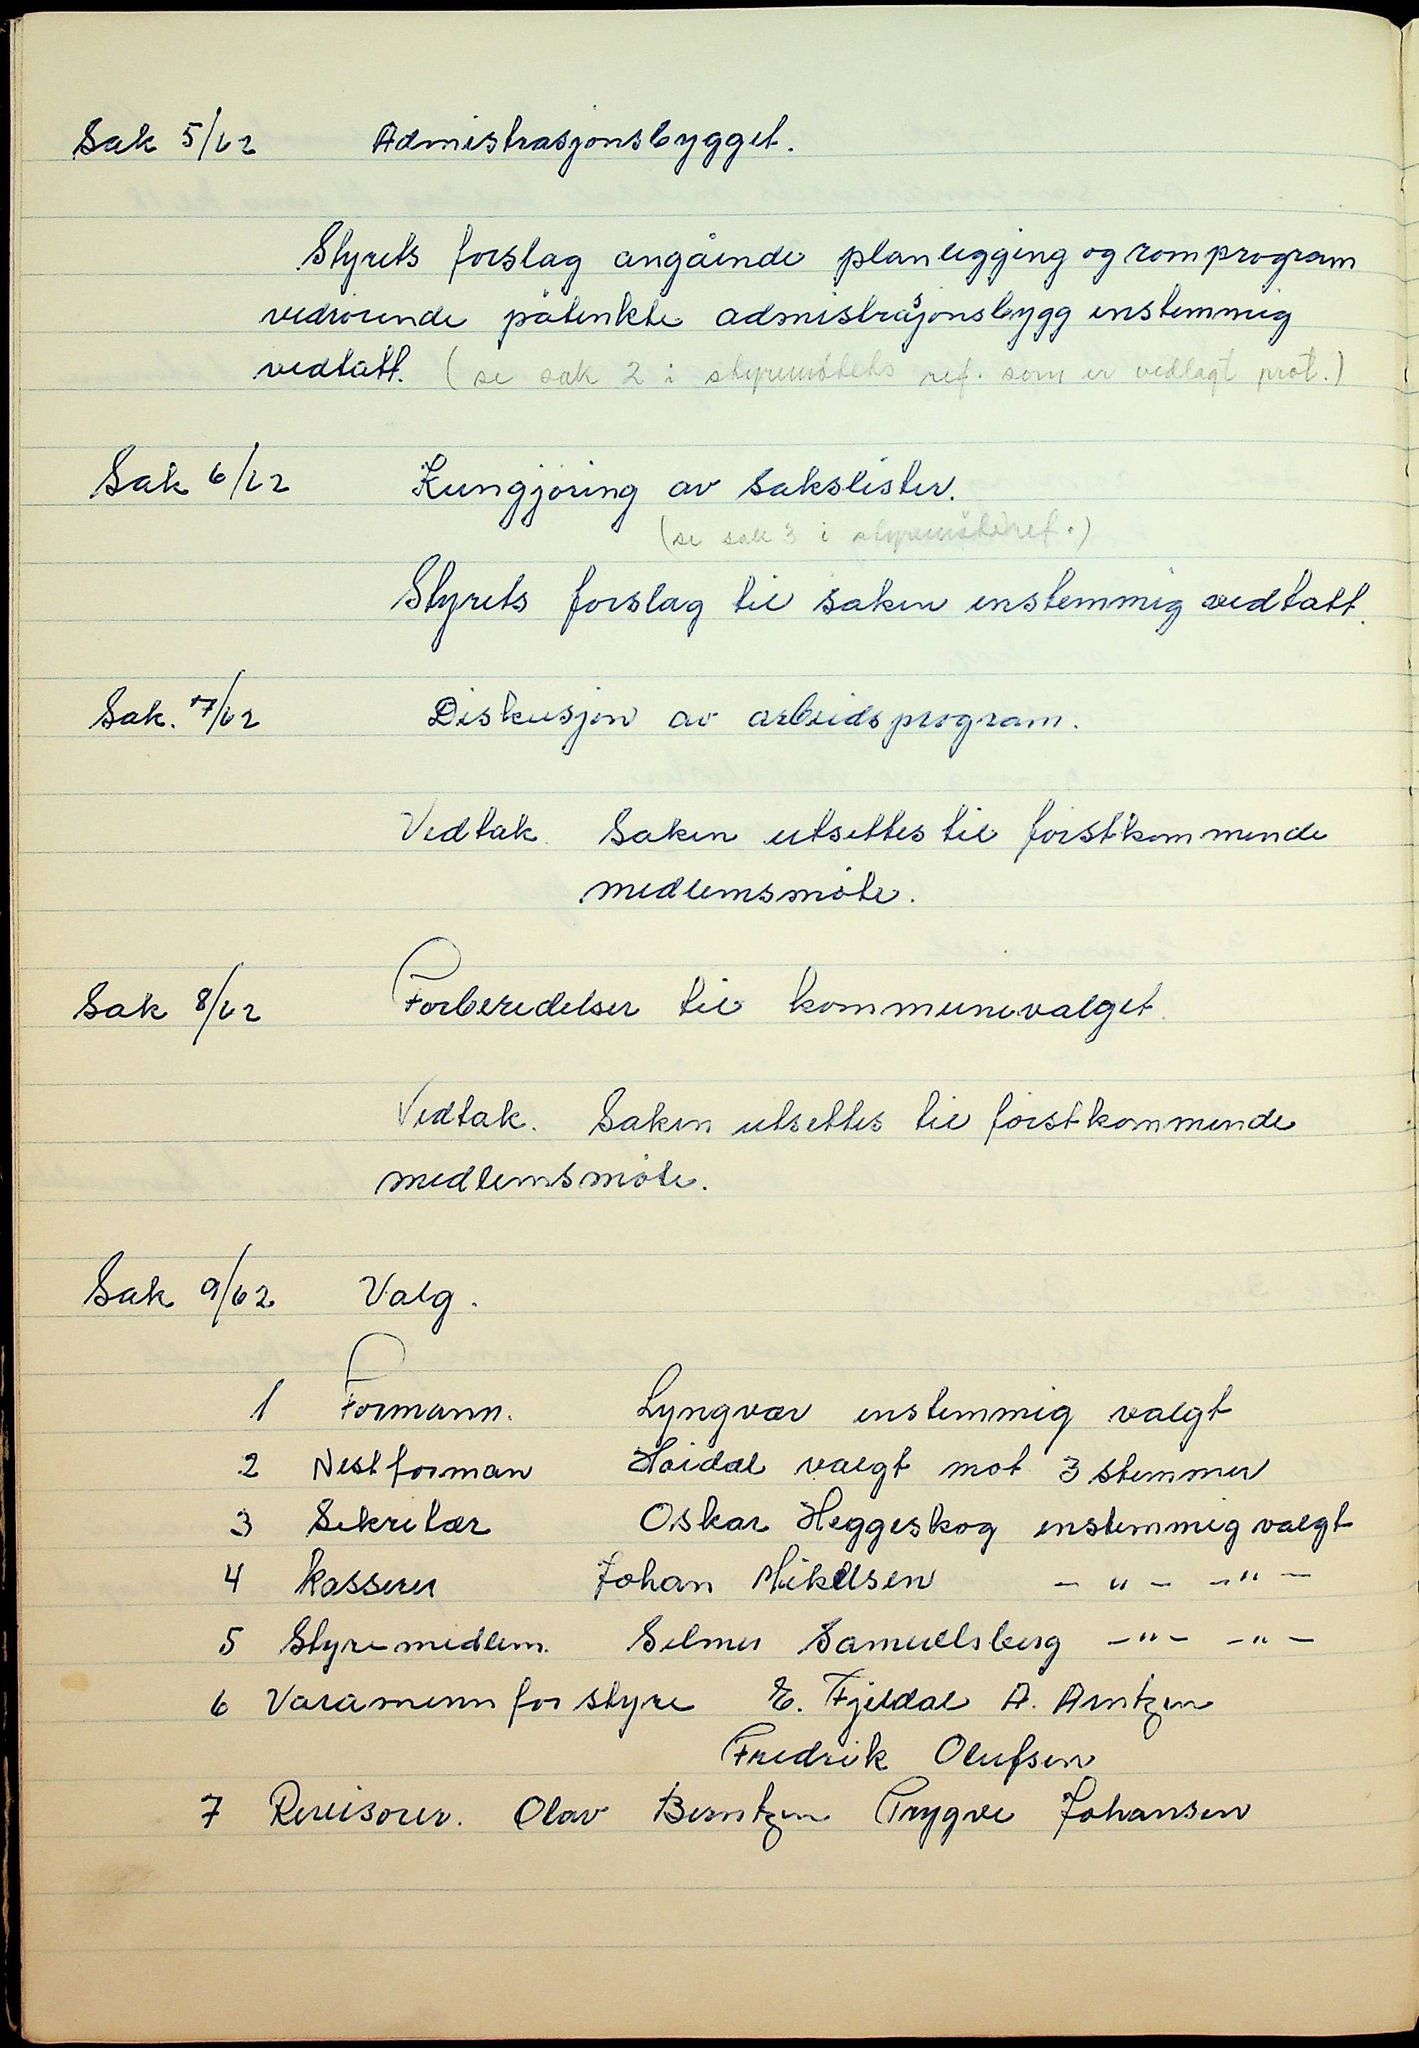 Sak 5/62 Admistrasjonsbygget.
Styrets forslag angående planlegging og romprogram
vedrørende påtenkte admistrasjonsbygg enstemmig
vedtatt. (se sak 2 i styremøtets ref. som er vedlagt prot.)
Sak 6/62 Kungjøring av sakslister.
(se sak 3 i styremøteref.)
Styrets forslag til saken enstemmig vedtatt.
Sak. 7/62 Diskusjon av arbeidsprogram.
Vedtak. Saken utsettes til førstkommende
medlemsmøte.
Sak 8/62 Forberedelser til kommunevalget.
Vedtak. Saken utsettes til førstkommende
medlemsmøte.
Sak 9/62 Valg.
1 Formann. Lyngvær enstemmig valgt
2 Nestforman Høidal valgt mot 3 stemmer
3 Sekretær Oskar Heggeskog enstemmig valgt
4 Kasserer Johan Mikelsen - " - - " -
5 Styremedlem. Selmer Samuelsberg - " - - " -
6 Varamenn for styre E. Fjeldal A. Arntzen
Fredrik Olufsen
7 Revisorer. Olav Berntzen Trygve Johansen